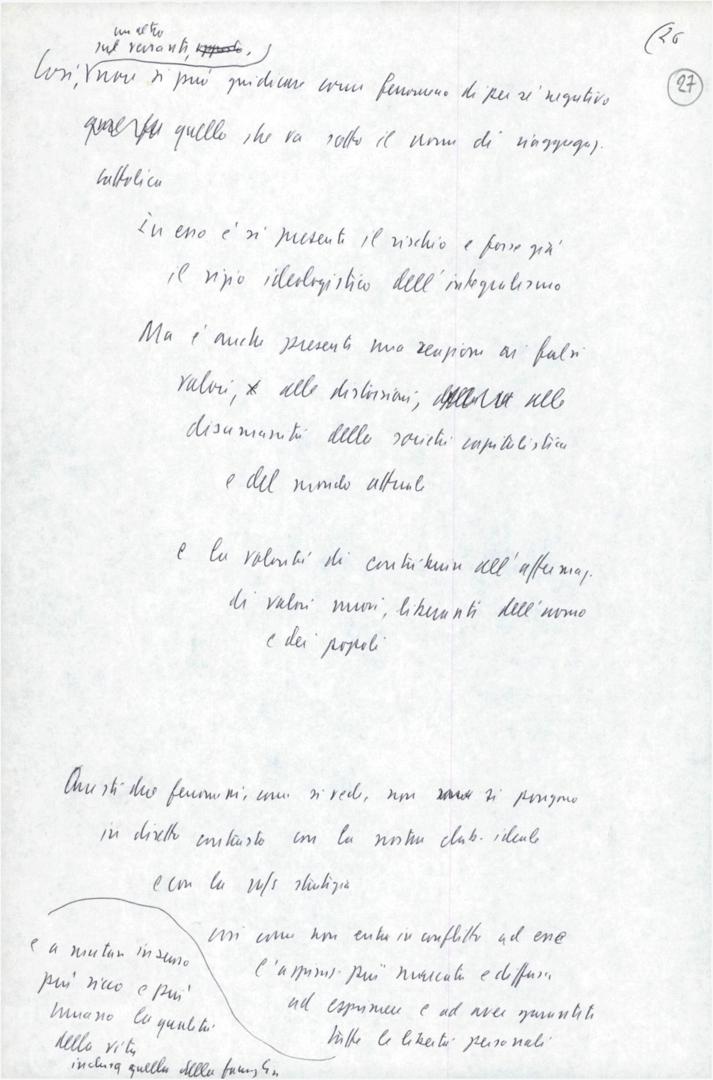 (26
27
un altro
sul versanti,
Così, non si può giudicare come fenomeno di per sé negativo
quello che va sotto il nome di riaggregaz.
cattolica
In esso è sì presente il rischio e forse già
il vizio ideologistico dell'integralismo
Ma è anche presente una reazione ai falsi
valori, alle distorsioni, alle
disumanità della società capitalistica
e del mondo attuale
e la volontà di contribuire all'affermaz.
di valori nuovi, liberanti dell'uomo
e dei popoli
Questi due fenomeni, come si vede, non si pongono
in diretto contrasto con la nostra elab. ideale
e con la n/s strategia
così come non entra in conflitto ad esse
l'aspiraz. più marcata e diffusa
ad esprimere e ad aver garantite
tutte le libertà personali
e a mutare in senso
più ricco e più
umano la qualità
della vita
inclusa quella della famiglia